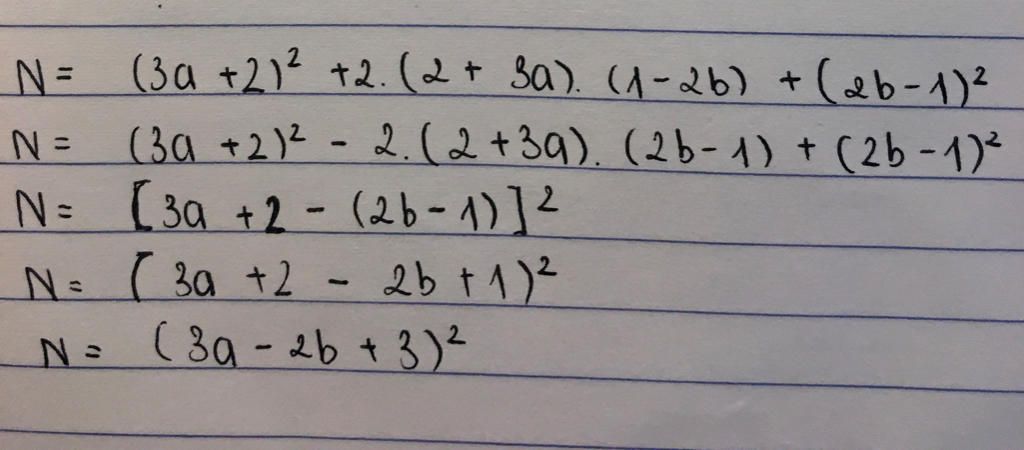 N = (3a + 2)² + 2. (2 + 3a). (1 - 2b) + (2b - 1)²
N = (3a + 2)² - 2. (2 + 3a). (2b - 1) + (2b - 1)²
N = [3a + 2 - (2b - 1)]²
N = (3a + 2 - 2b + 1)²
N = (3a - 2b + 3)²